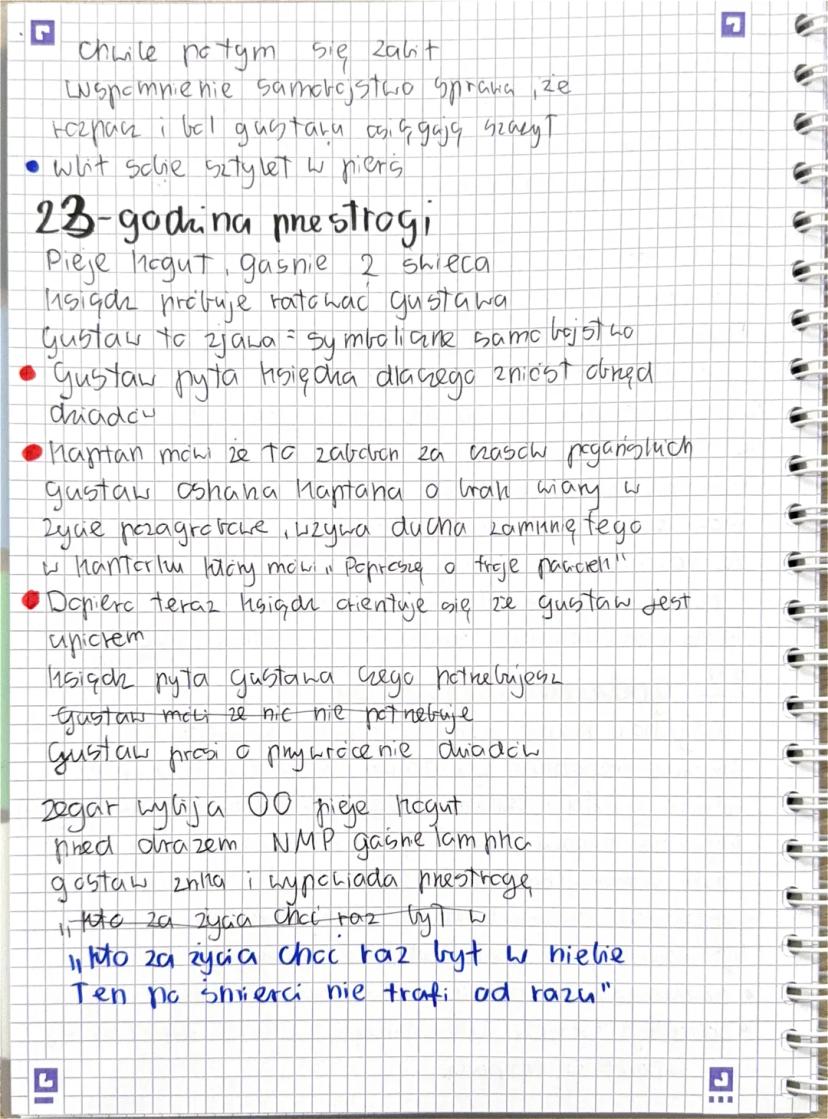 Chwile potym się zabił
Wspomnienie samobójstwo sprawia, że
rozpacz i ból gustawa osiągają szczyt
• wbił sobie sztylet w pierś
23-godzina przestrogi
Pieje kogut, gaśnie 2 świeca
ksiądz próbuje ratować gustawa
Gustaw to zjawa = symboliczne samobójstwo
• Gustaw pyta księdza dlaczego zniósł obrzęd
dziadów
• Kapłan mówi że to zabobon za czasów pogańskich
gustaw oskarża kapłana o brak wiary w
życie pozagrobowe, wzywa ducha zamkniętego
w kantorku który mówi „Poproszę o troje paciorek"
• Dopiero teraz ksiądz orientuje się że gustaw jest
upiorem
ksiądz pyta gustawa czego potrzebujesz
Gustaw mówi że nic nie potrzebuje
Gustaw prosi o przywrócenie dziadów
zegar wybija 00 pieje kogut
przed obrazem NMP gaśnie lampka
gostaw znika i wypowiada przestrogę
„kto za życia choć raz był w
„kto za życia choć raz był w niebie
Ten po śmierci nie trafi od razu"